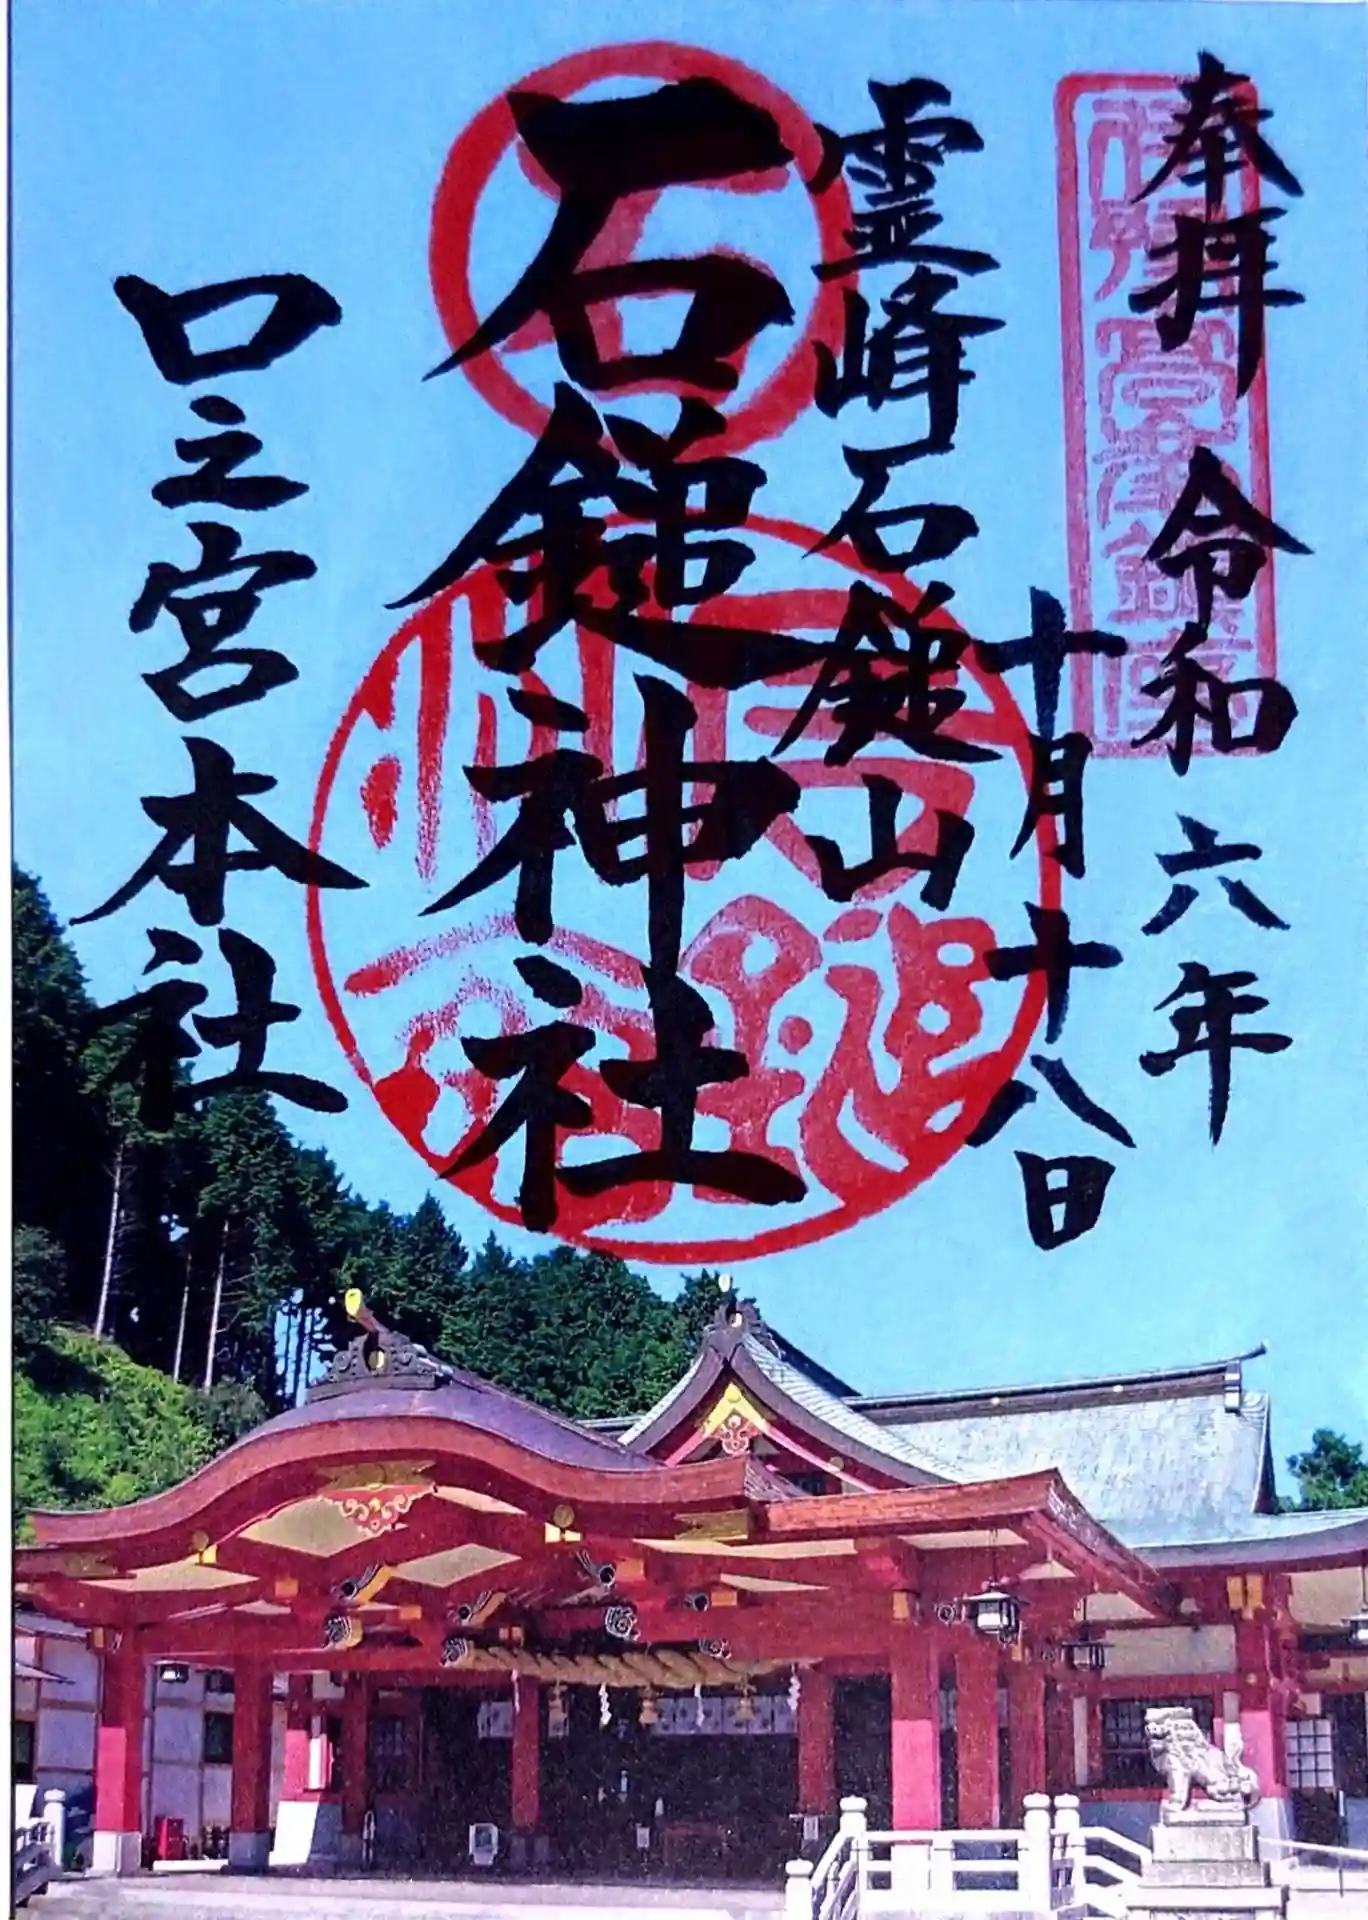 奉拝 令和六年
十月十八日
霊峰石鎚山
石鎚神社
口之宮本社